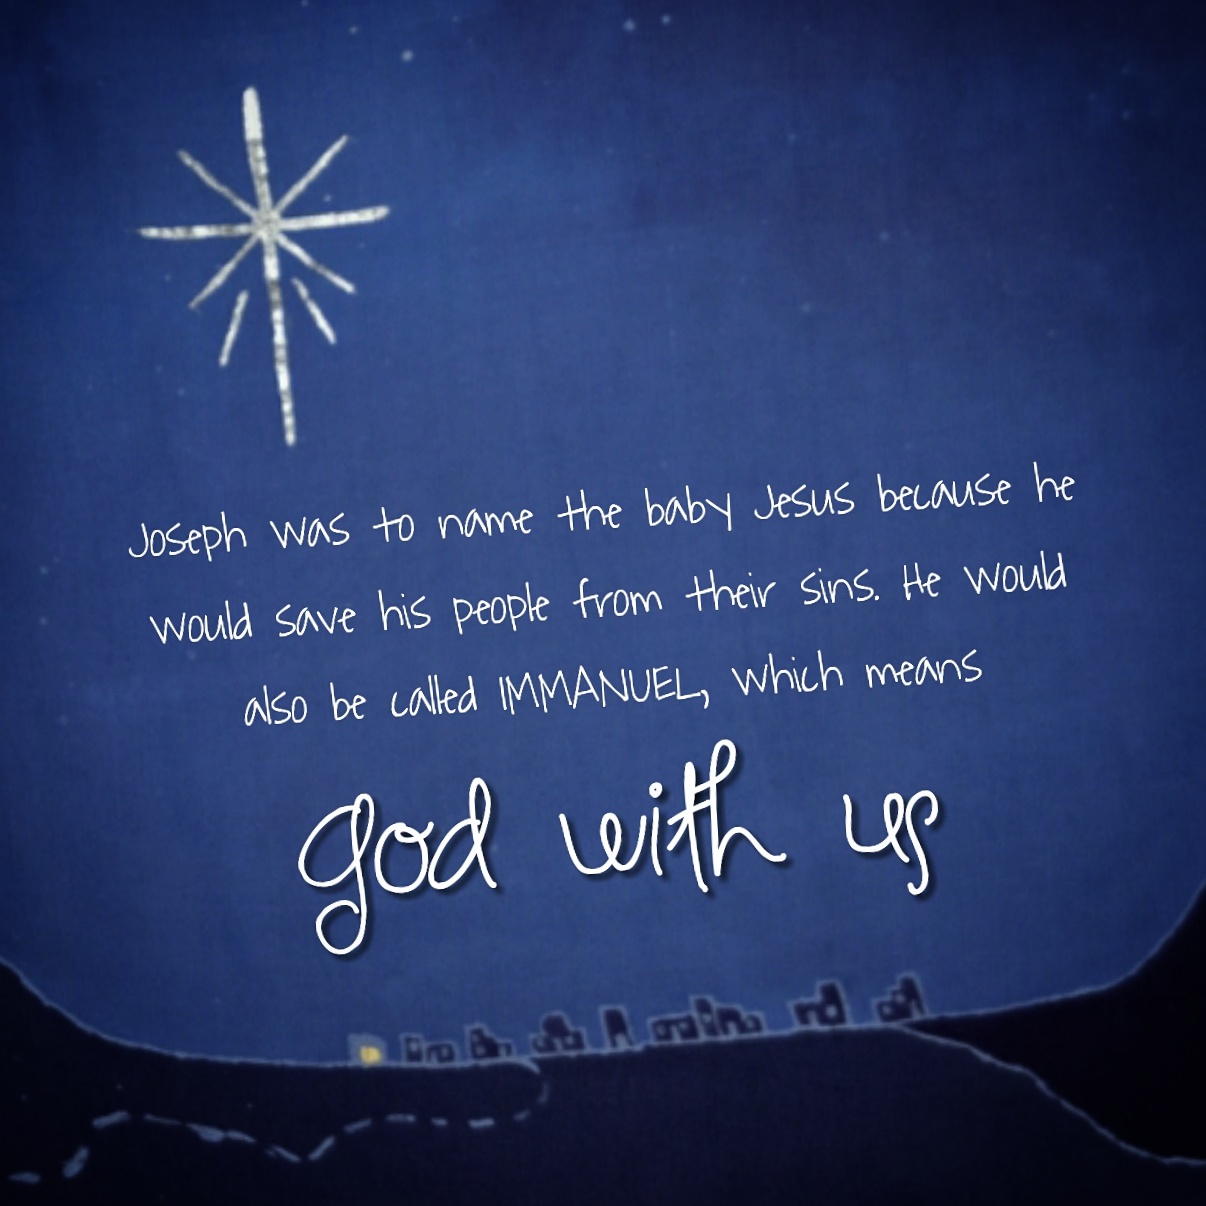 Joseph was to name the baby Jesus because he
would save his people from their sins. He would
also be called IMMANUEL, which means
god with us